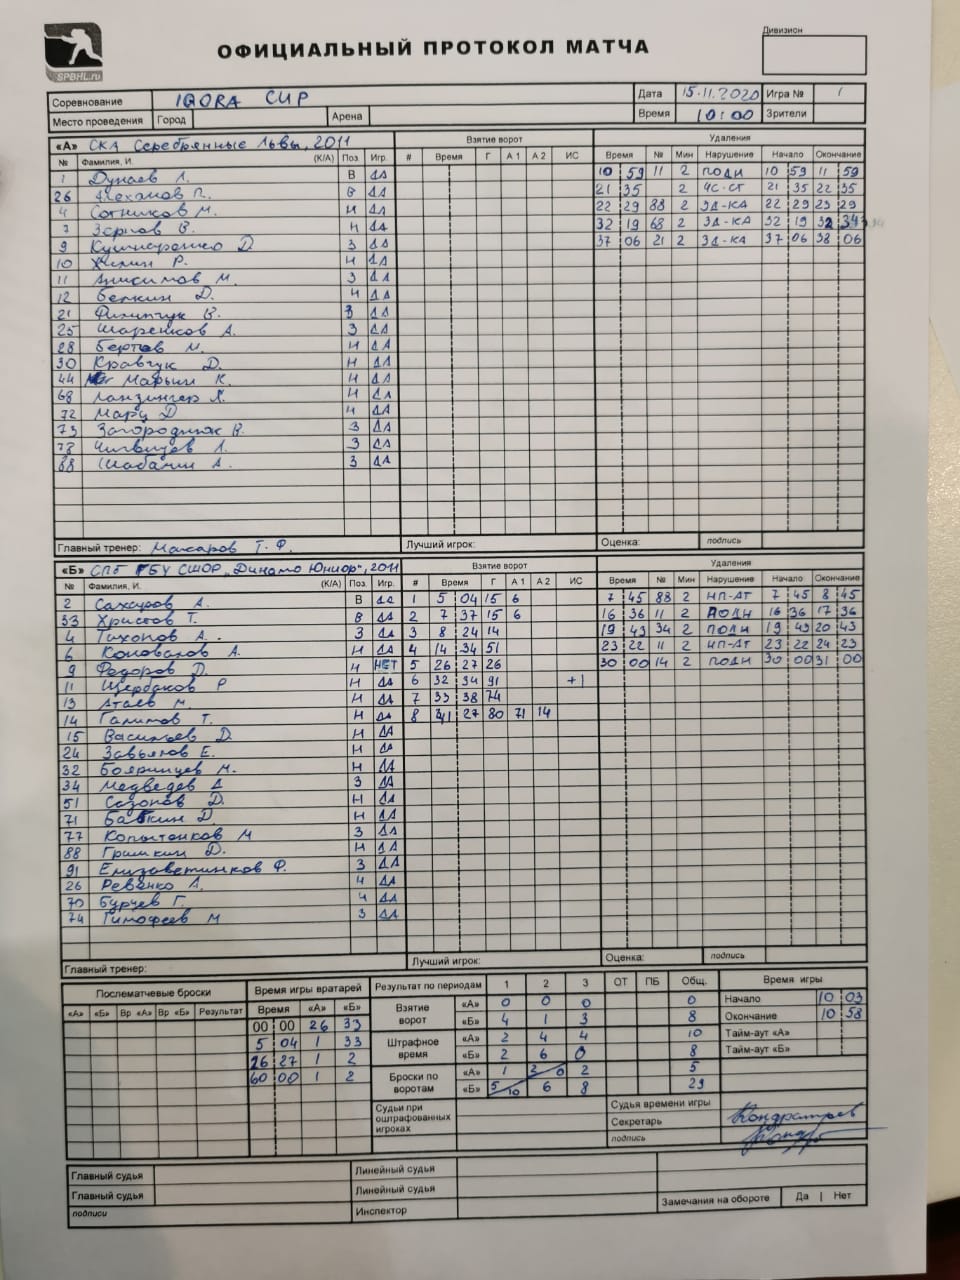 SPBHL.ru
ОФИЦИАЛЬНЫЙ ПРОТОКОЛ МАТЧА
Дивизион
Соревнование IGORA CUP Дата 15.11.2020 Игра № 1
Место проведения Город Арена Время 10:00 Зрители
«А» СКА Серебрянные Львы, 2011 Взятие ворот Удаления
№ Фамилия, И. (К/А) Поз Игр. # Время Г А 1 А 2 ИС Время № Мин Нарушение Начало Окончание
1 Дунаев Л. В ДА 10 59 11 2 ПОДН 10 59 11 59
26 П. В ДА 21 35 2 ЧС-СТ 21 35 22 35
4 Сотников М. Н ДА 22 29 88 2 ЗД-КА 22 29 23 29
7 Зернов В. Н ДА 32 19 68 2 ЗД-КА 32 19 32 34
9 Д З ДА 37 06 21 2 ЗД-КА 37 06 38 06
10 Жилин Р. Н ДА
11 Анисимов М. З ДА
12 Белкин Д. Н ДА
21 Филипчук В. З ДА
25 Шаренков А. З ДА
28 М. Н ДА
30 Кравчук Д. Н ДА
44 Марьин К. Н ДА
68 Ланзингер Л. Н ДА
72 Марц Д Н ДА
73 Загороднюк В. З ДА
Л. З ДА
88 Шабанин А. З ДА
Главный тренер: Макаров Т. Ф. Лучший игрок: Оценка: подпись
«Б» СПб ГБУ СШОР „Динамо Юниор", 2011 Взятие ворот Удаления
№ Фамилия, И. (К/А) Поз. Игр. # Время Г А 1 А 2 ИС Время № Мин Нарушение Начало Окончание
2 А. В ДА 1 5 04 15 6 7 45 88 2 НП-АТ 7 45 8 45
33 Христов Т. В ДА 2 7 37 15 6 16 36 11 2 ПОДН 16 36 17 36
4 Тихонов А. З ДА 3 8 24 14 19 43 34 2 ПОДН 19 43 20 43
6 Коновалов А. Н ДА 4 14 34 51 23 22 11 2 НП-АТ 23 22 24 23
9 Федоров Д. Н НЕТ 5 26 27 26 30 00 14 2 ПОДН 30 00 31 00
11 Щербаков Р Н ДА 6 32 34 91 +1
13 Атаев М. Н ДА 7 33 38 74
14 Галимов Т. Н ДА 8 27 80 71 14
15 Васильев Д. Н ДА
24 Завьялов Е. Н ДА
32 Бояринцев М. Н ДА
34 Медведев Д З ДА
51 Сазонов Д. Н ДА
71 Бабкин Д Н ДА
77 Копытенков М З ДА
88 Гришкин Д. Н ДА
91 Елизаветинков Ф. З ДА
26 Ревенко А. Н ДА
70 Бурцев Г. Н ДА
74 Тимофеев М З ДА
Главный тренер: Лучший игрок: Оценка: подпись
Послематчевые броски Время игры вратарей Результат по периодам 1 2 3 ОТ ПБ Общ. Время игры
«А» «Б» Вр «А» Вр «Б» Результат Время «А» «Б» Взятие ворот «А» 0 0 0 0 Начало 10 03
00 00 26 33 «Б» 4 1 3 8 Окончание 10 58
5 04 1 33 Штрафное время «А» 2 4 4 10 Тайм-аут «А»
26 27 1 2 «Б» 2 6 0 8 Тайм-аут «Б»
60 00 1 2 Броски по воротам «А» 1 2 0 2 5
«Б» 5 10 6 8 29
Судьи при оштрафованных игроках Судья времени игры
Секретарь Кондратьев
подпись
Главный судья Линейный судья
Главный судья Линейный судья Замечания на обороте Да | Нет
подписи Инспектор